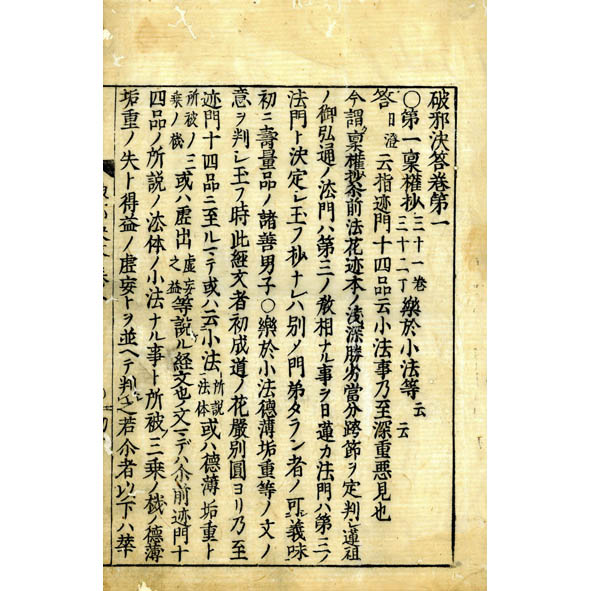 破邪決答卷第一
〇第一稟權抄三十一卷三十二丁樂於小法等云云
答日澄云指迹門十四品云小法事乃至深重悪見也
今謂稟權抄爾前法花迹本ノ淺深勝劣當分跨節ヲ定判シ蓮祖
ノ御弘通ノ法門ハ第三ノ教相ナル事ヲ日蓮カ法門ハ第三ノ
法門ト決定シ玉フ抄ナレハ別メ門弟タラン者ノ可義味
初ニ壽量品ノ諸善男子〇樂於小法德薄垢重等ノ文ノ
意ヲ判シ玉フ時此經文者初成道ノ花嚴別圓ヨリ乃至
迹門十四品ニ至ルマテ或ハ云小法所説法体或ハ德薄垢重ト
所被ノ三乗ノ機或ハ虚出虚妄之益等説ル經文也文マテハ尒前迹門十
四品ノ所説ノ法体ノ小法ナル事ト所被ノ三乗ノ機ノ德薄
垢重ノ失ト得益ノ虚妄トヲ並ヘテ判之若尒者以下ハ華